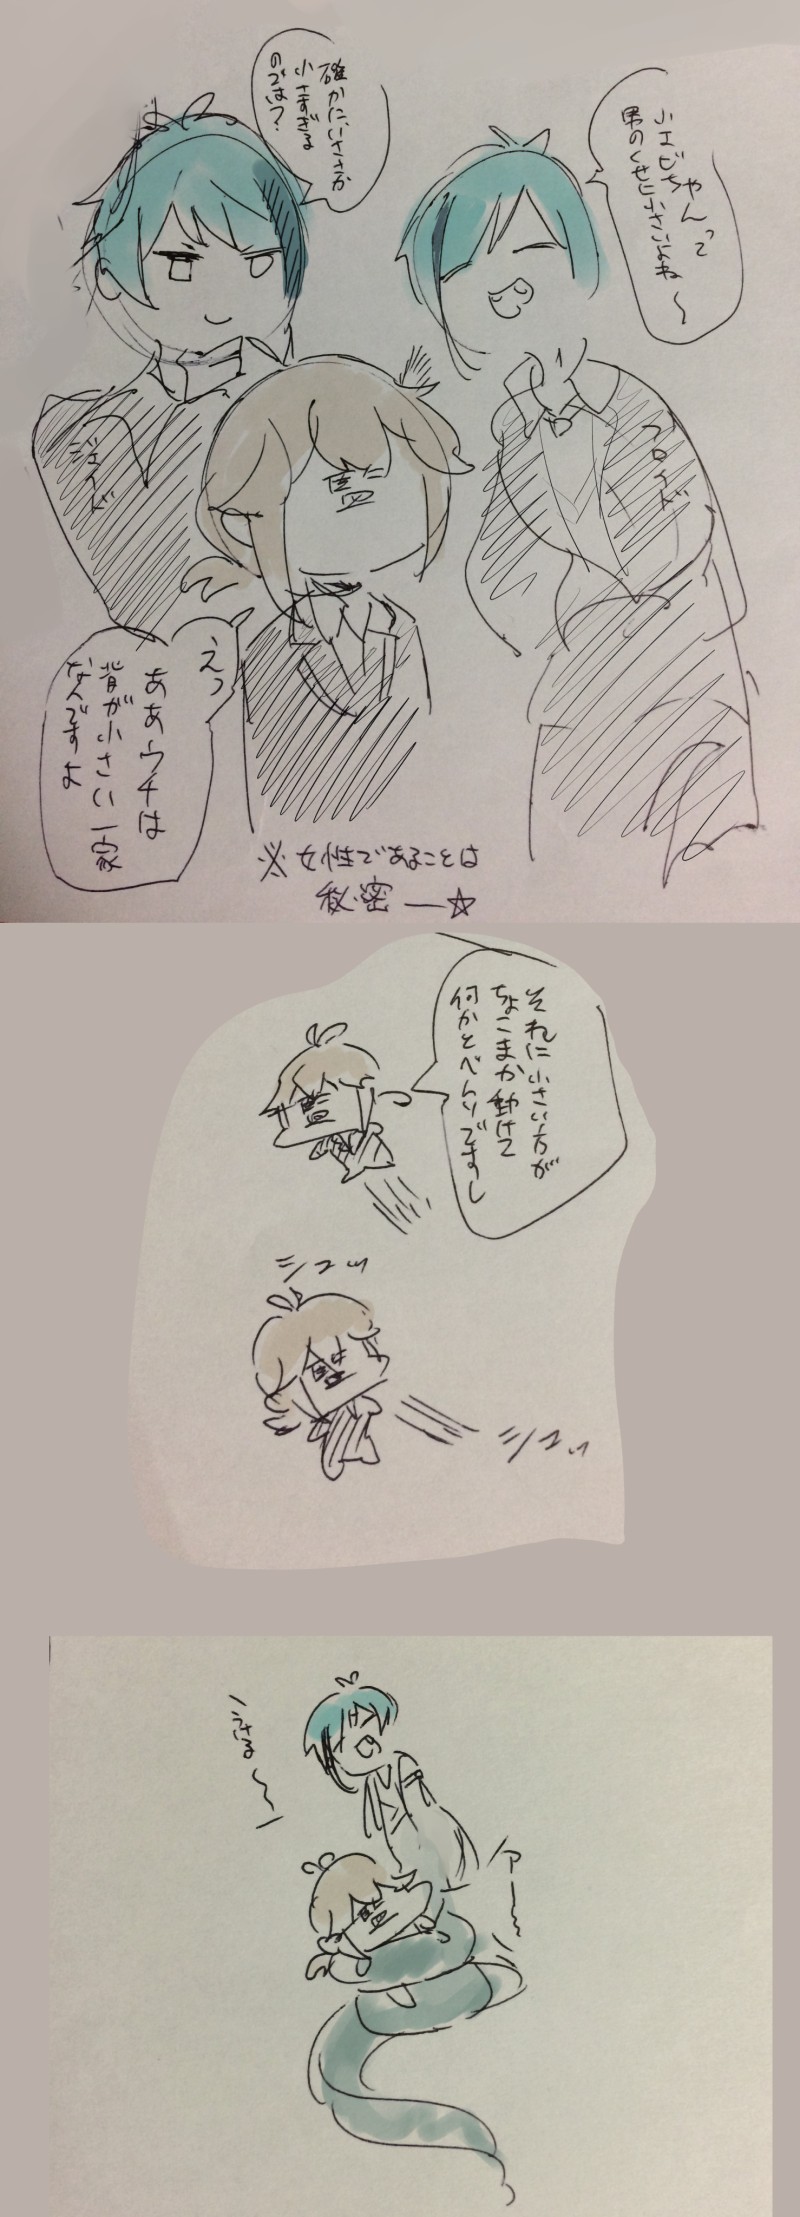 小エビちゃんって
男のくせに小さいよね〜
確かに、いささか
小さすぎる
のでは?
ジェイド
フロイド
監
えっ
ああウチは
背が小さい一家
なんですよ
※女性であることは
秘密―☆
それに小さい方が
ちょこまか動けて
何かとべんりですし
監
シュッ
監
シュッ
うざる〜
アー
監